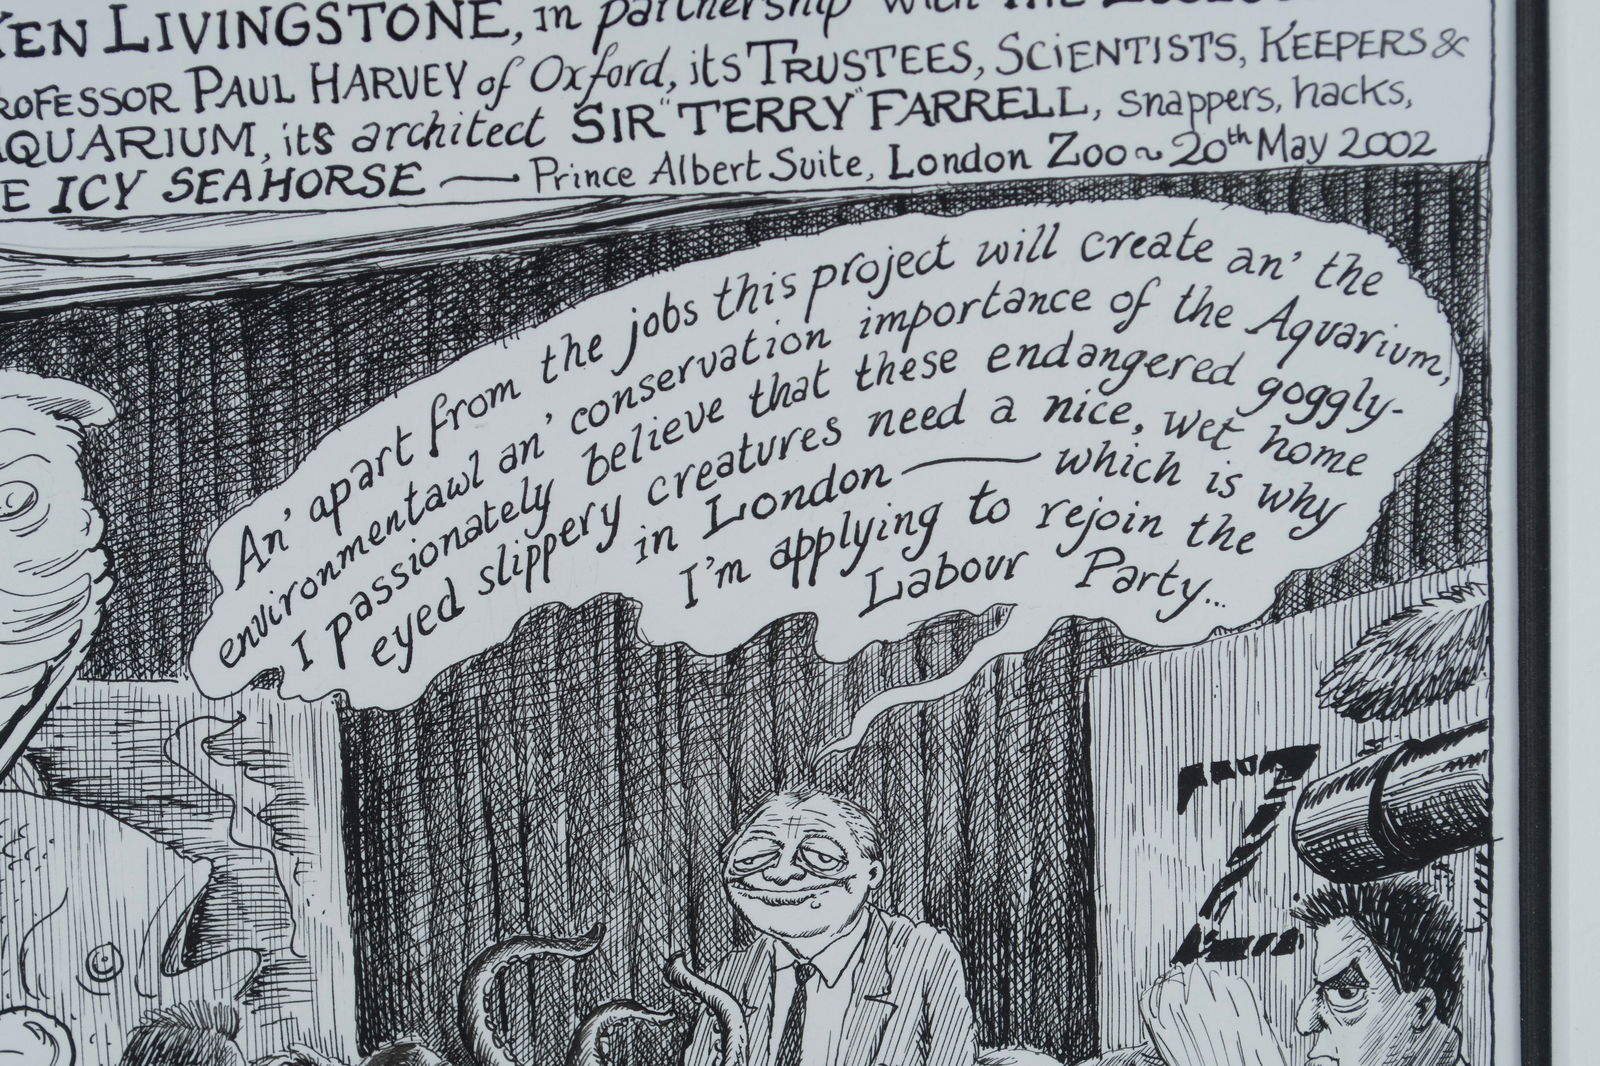 KEN LIVINGSTONE, in partnership with THE
PROFESSOR PAUL HARVEY of Oxford, its TRUSTEES, SCIENTISTS, KEEPERS &
AQUARIUM, its architect SIR "TERRY" FARRELL, snappers, hacks,
E ICY SEAHORSE — Prince Albert Suite, London Zoo ~ 20th May 2002
An' apart from the jobs this project will create an' the
environmentawl an' conservation importance of the Aquarium,
I passionately believe that these endangered goggly-
eyed slippery creatures need a nice, wet home
in London — which is why
I'm applying to rejoin the
Labour Party...
Z